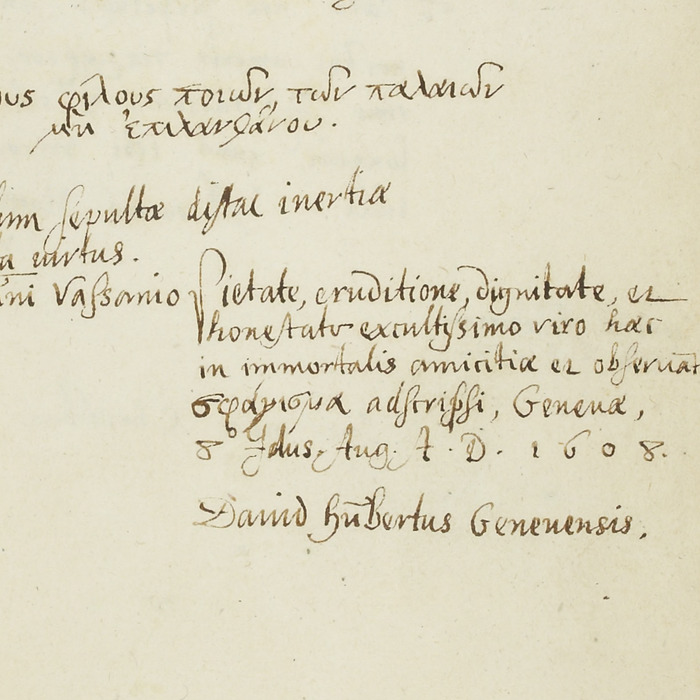 ους φίλους ποιῶν, τῶν παλαιῶν
μὴ ἐπιλανθάνου.
sepultæ distat inertiæ
virtus.
Vassanio Pietate, eruditione, dignitate, et
honestate excultissimo viro hæc
in immortalis amicitiæ et observat
σφράγισμα adscripsi, Genevæ,
8º Idus. Aug. A. D. 1608.
David Hubertus Genevensis.